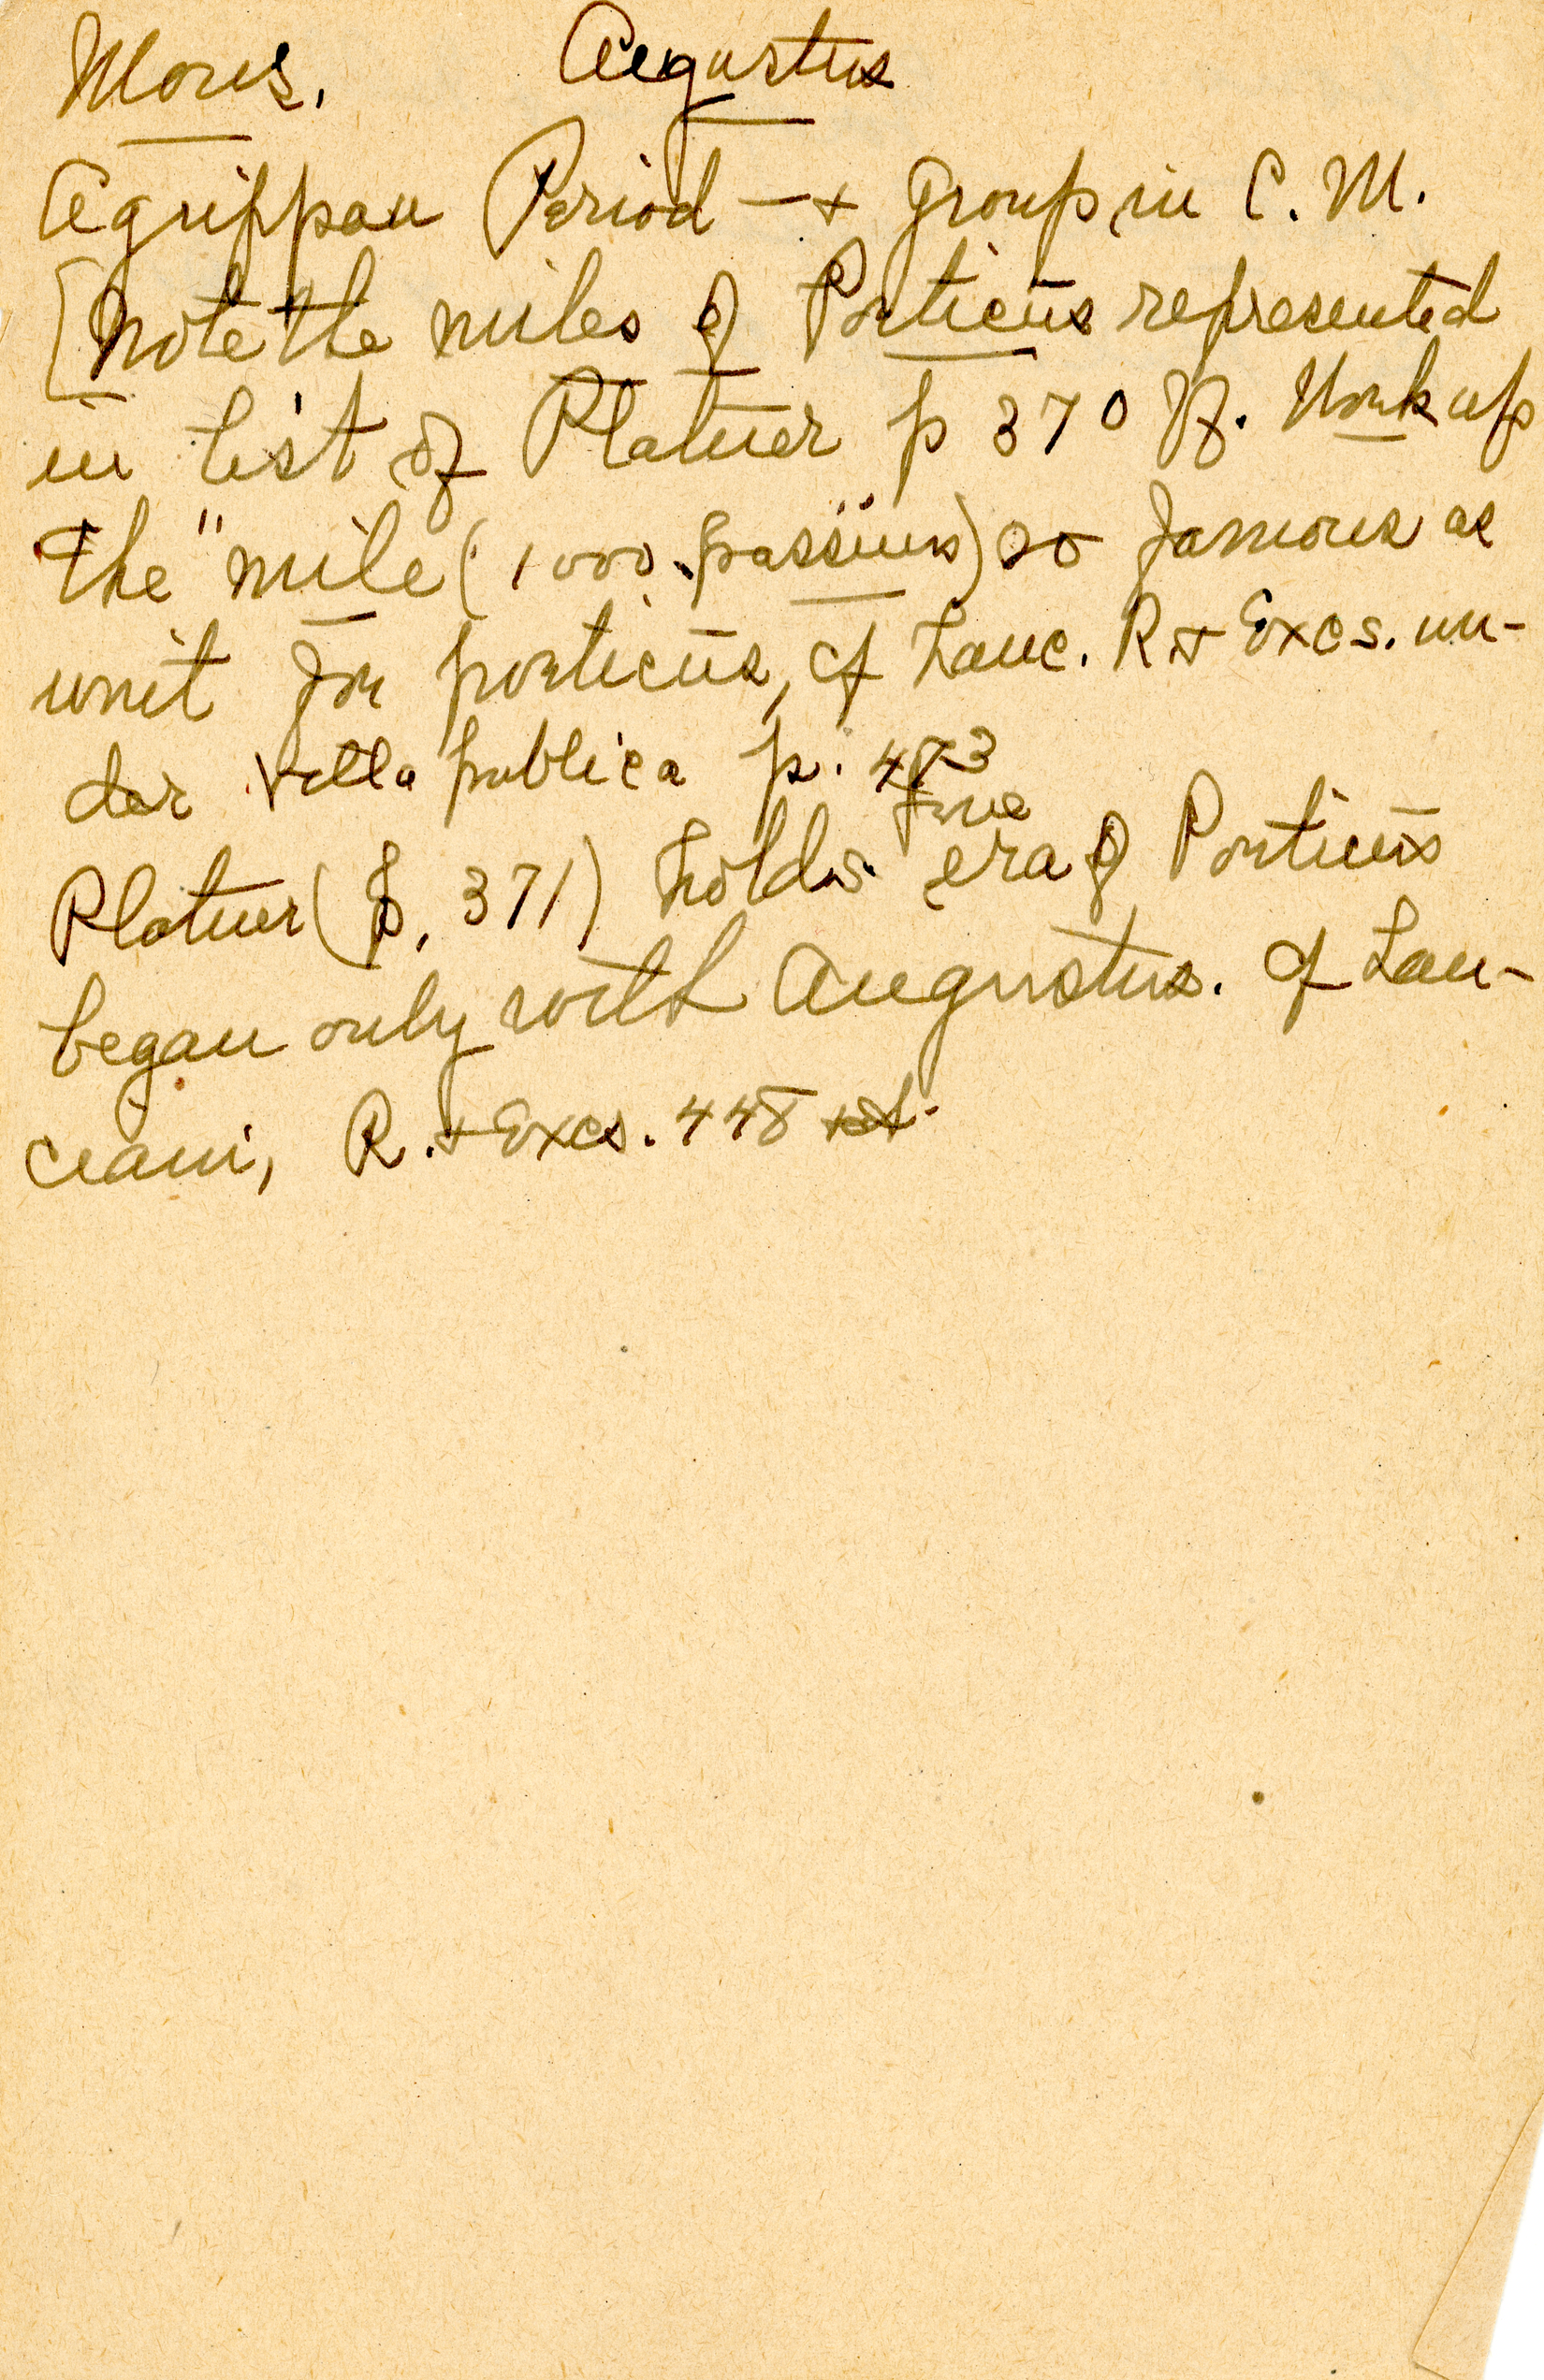 Mons. Augustus
Agrippan Period — + Group in C. M.
[Note the miles of Porticūs represented
in list of Platner p 370 ff. Work up
the "mile (1000 passūum) so famous as
unit for porticūs, cf Lanc. R + Excs. un-
der Villa publica p. 473
Platner (p. 371) holds true era of Porticūs
began only with Augustus. cf Lan-
ciani, R. + Excs. 448